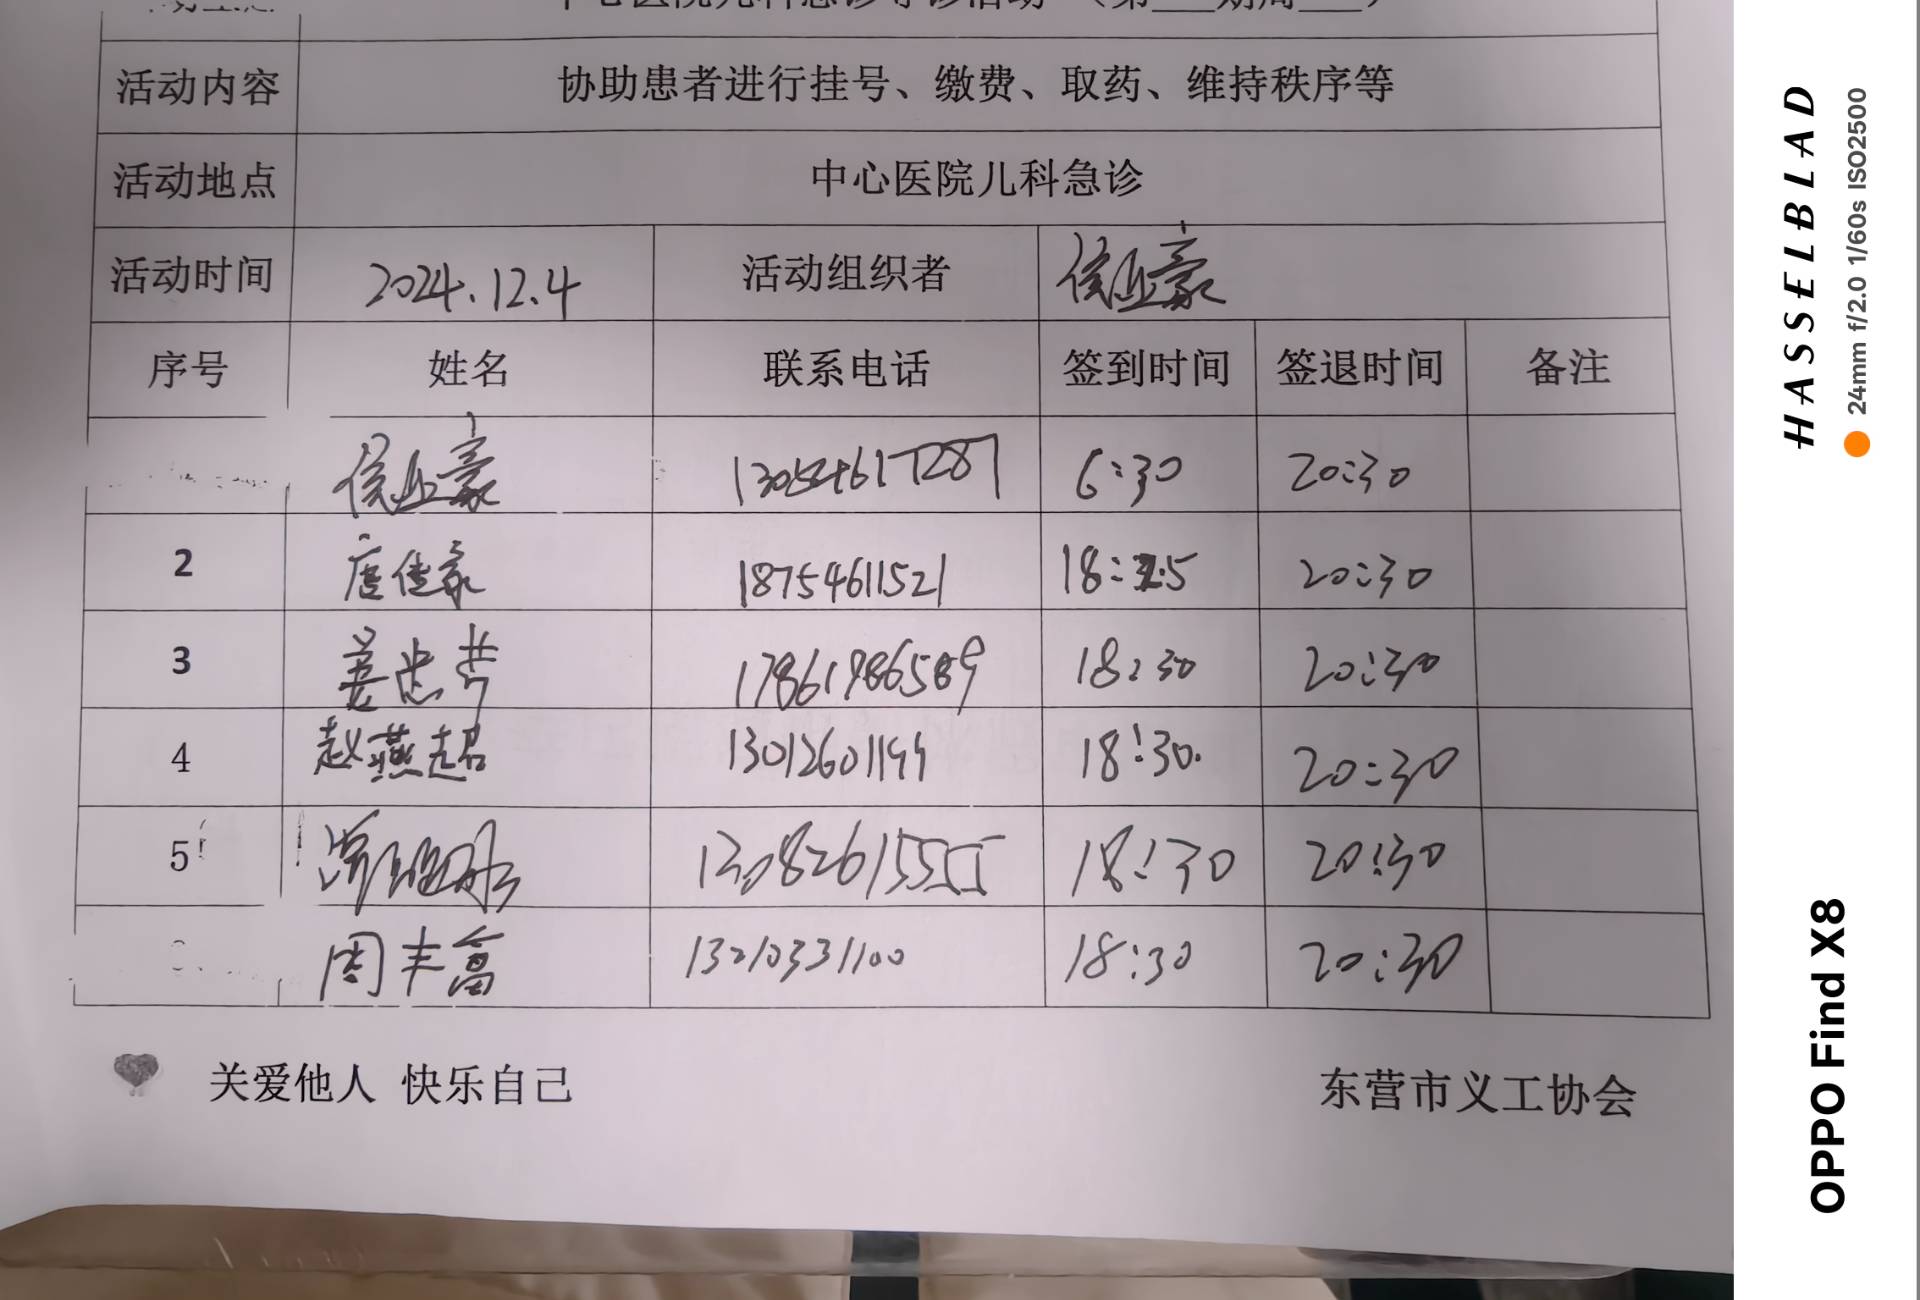 中心医院儿科急诊导诊活动 （第___期周___）
活动内容 协助患者进行挂号、缴费、取药、维持秩序等
活动地点 中心医院儿科急诊
活动时间 2024.12.4 活动组织者 侯业豪
序号 姓名 联系电话 签到时间 签退时间 备注
侯业豪 6:30 20:30
2 唐佳豪 18754611521 18:25 20:30
3 姜忠 17861986589 18:30 20:30
4 赵燕超 13012601199 18:30. 20:30
5 13082615555 18:30 20:30
周丰富 13210331100 18:30 20:30
关爱他人 快乐自己
东营市义工协会
HASSELBLAD
24mm f/2.0 1/60s ISO2500
OPPO Find X8